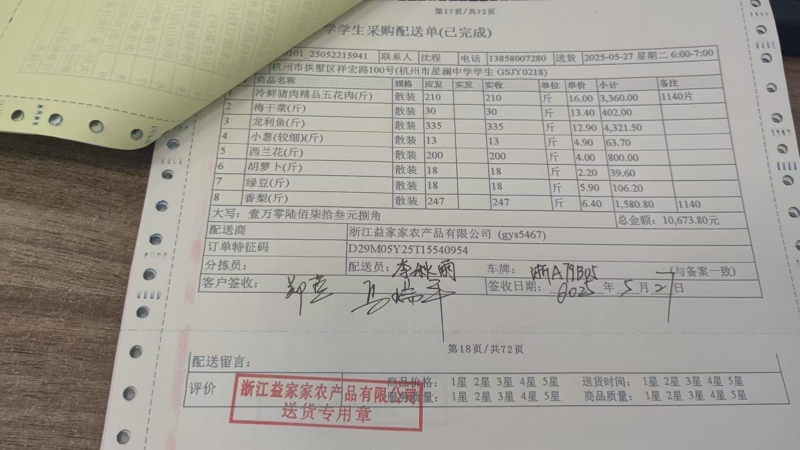 第17页/共72页
学生采购配送单(已完成)
0101_25052215941 联系人 沈程 电话 13858007280 送货 2025-05-27 星期二 6:00-7:00
杭州市拱墅区祥宏路100号(杭州市星澜中学学生 GSJY0218)
商品名称 规格 应发 实发 实收 单位 单价 小计 备注
冷鲜猪肉精品五花肉(斤) 散装 210 210 斤 16.00 3,360.00 1140片
2 梅干菜(斤) 散装 30 30 斤 13.40 402.00
3 龙利鱼(斤) 散装 335 335 斤 12.90 4,321.50
4 小葱(较细)(斤) 散装 13 13 斤 4.90 63.70
5 西兰花(斤) 散装 200 200 斤 4.00 800.00
6 胡萝卜(斤) 散装 18 18 斤 2.20 39.60
7 绿豆(斤) 散装 18 18 斤 5.90 106.20
8 香梨(斤) 散装 247 247 斤 6.40 1,580.80 1140
大写: 壹万零陆佰柒拾叁元捌角 总金额: 10,673.80元
配送商 浙江益家家农产品有限公司 (gys5467)
订单特征码 D29M05Y25T15540954
分拣员: 配送员: 车牌: 浙A79B05 (与备案一致)
客户签收: 签收日期: 2025 年 5 月 27 日
第18页/共72页
配送留言:
评价 商品价格: 1星 2星 3星 4星 5星 送货时间: 1星 2星 3星 4星 5星
服务质量: 1星 2星 3星 4星 5星 商品质量: 1星 2星 3星 4星 5星
浙江益家家农产品有限公司
送货专用章